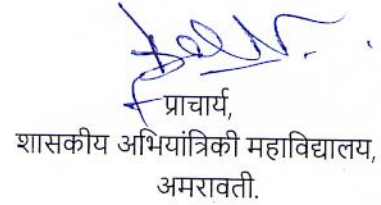 प्राचार्य,
शासकीय अभियांत्रिकी महाविद्यालय,
अमरावती.